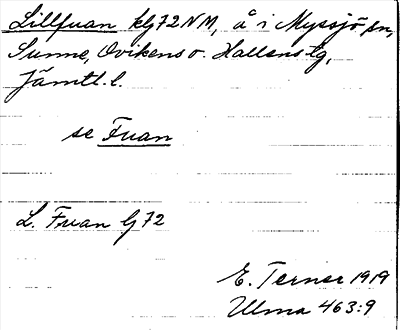 Lillfuan klg72NM, å i Myssjö sn,
Sunne, Ovikens o. Hallens tg,
Jämtl. l.
se Fuan
L. Fuan lg 72
E. Terner 1919
Ulma 463:9